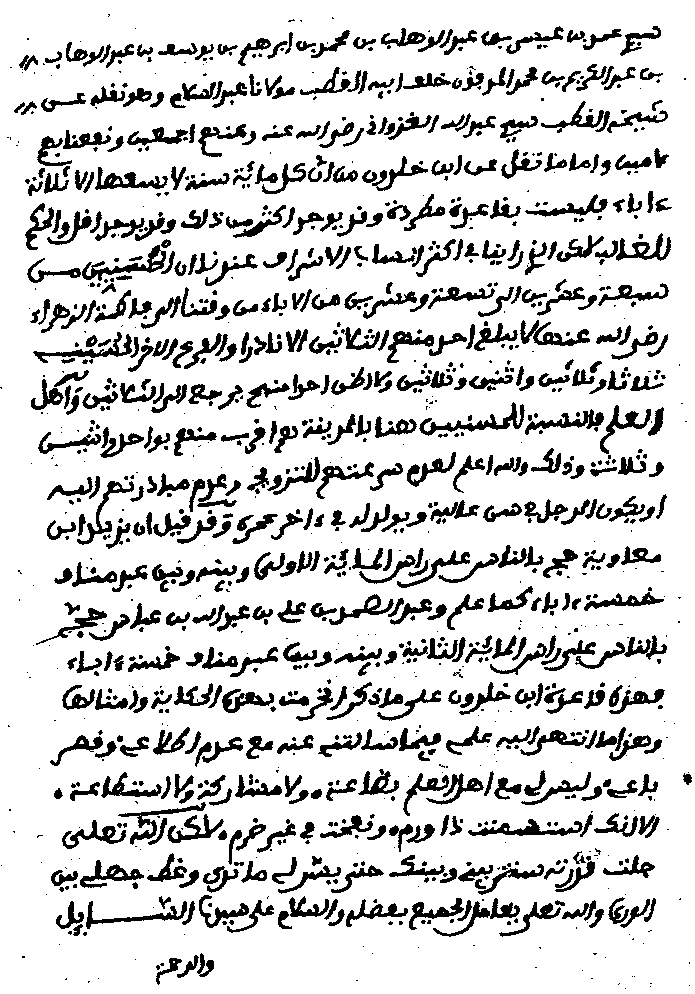 سيدي عمر بن عيسى بن عبد الوهاب بن محمد بن ابرهيم بن يوسف بن عبد الوهاب
بن عبد الكريم بن محمد المدفون خلف ابيه القطب مولانا عبد السلام وهو نقله عـن
شيخه القطب سيدي عبد الله الغزواني رضي الله عنه وعنهم اجمعين ونفعنا بهم
ءامين واما ما نقل عن ابن خلدون من ان كل مائة سنة لا يسعها الا ثلاثة
ءاباء فليست بقاعدة مطردة وقد يوجد اكثر من ذلك وقد يوجد اقل والحكم
للغالب لكن الذي راينا في اكثر انساب الاشراف عندنا ان الحسنيين مـن
سبعة وعشرين الى تسعة وعشرين من الاباء من وقتنا الى فاطمة الزهراء
رضي الله عنها لا يبلغ احد منهم الثلاثين الا نادرا والفرع الاخر الحسينيـ
ثلاثا وثلاثين واثنين وثلاثين ولا اظن احدا منهم يرجع الى الثلاثين وا كل
العلم بالنسبة للحسنيين هنا بالمدينة هم اقرب منهم بواحد واثنيـن
وثلاثة وذلك والله اعلم لعدم سرعتهم للتزويج وعدم مبادرتهم اليه
او يكون الرجل في سن عالية ويولد له في ءاخر عمره وقد قيل ان يزيد ابن
معاوية حج بالناس على راس المائة الاولى وبينه وبين عبد مناف
خمسة ءاباء كما علم وعبد الصمد بن علي بن عبد الله بن عباس حج
بالناس على راس المائة الثانية وبينه وبين عبد مناف خمسة ءاباء
فهذه قاعدة ابن خلدون على ما ذكر انخرمت بهذه الحكاية وامثالها
وهذا ما انتهى اليه علمي فيما سالتني عنه مع عدم اطلاعي وقصر
باعي وليس لي مع اهل العلم بضاعة ولا مشاركة ولا استطاعة
الا انك استسمنت ذا ورم ونفخت في غير ضرم لاكن الله تعلى
جلت قدرته ستر بيني وبينك حتى يسر لي ما ترى وغطى جهلي بين
الورى والله تعلى يعامل الجميع بفضله والسلام على سيدنا الشـــايل
والرحمة